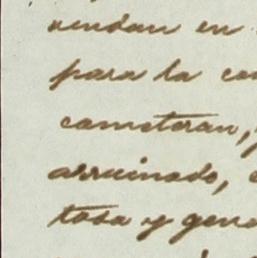 vendan en
para la con
cometeran,
arruinado,
tosa y gene